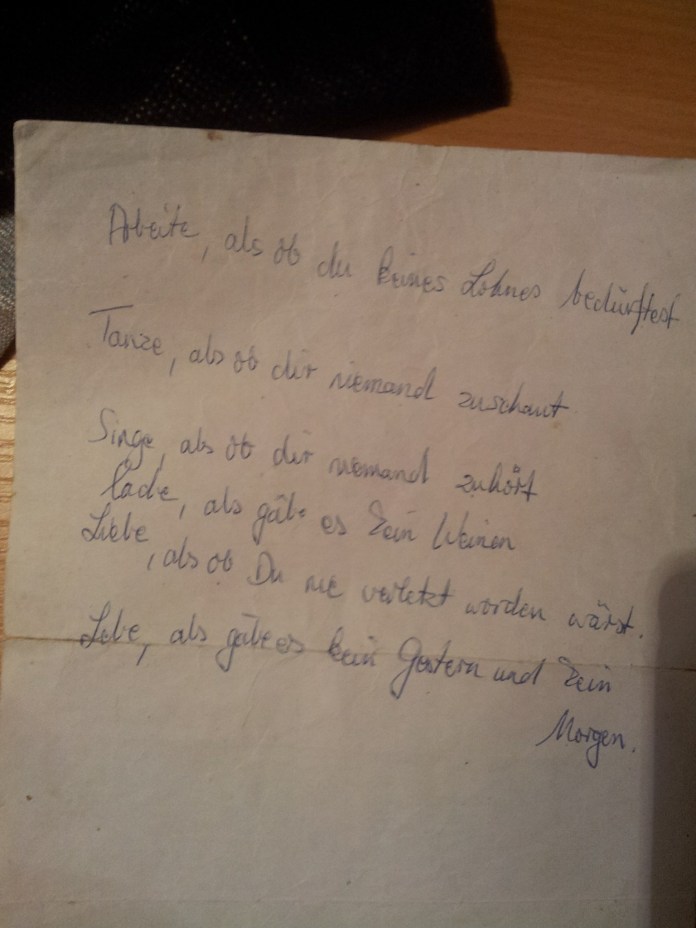 Arbeite, als ob du keines Lohnes bedürftest
Tanze, als ob dir niemand zuschaut
Singe, als ob dir niemand zuhört
lache, als gäbe es kein Weinen
Liebe, als ob Du nie verletzt worden wärst.
Lebe, als gäbe es kein Gestern und kein
Morgen.